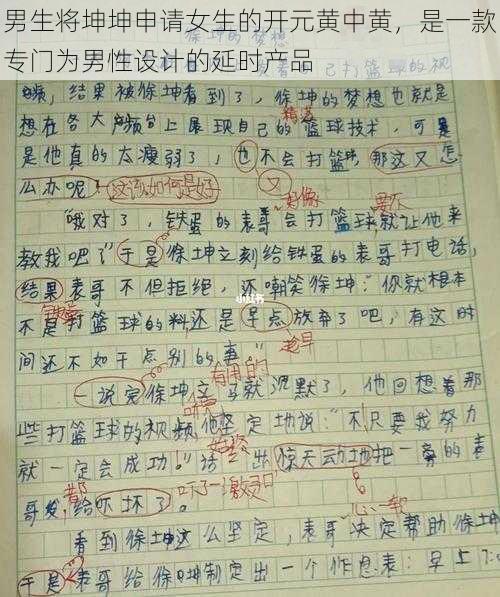 男生将坤坤申请女生的开元黄中黄，是一款
专门为男性设计的延时产品
徐坤的梦想
打篮球的视
频，结果被徐坤看到了，徐坤的梦想也就是
精湛
想在各大平台上展现自己的篮球技术，可是
是他真的太瘦弱了，也不会打篮球，那这又怎
么办呢！这该如何是好
又
好像
要不
哦对了，铁蛋的表哥会打篮球就让他来
教我吧了”于是徐坤立刻给铁蛋的表哥打电话，
结果表哥不但拒绝，还嘲笑徐坤：“你就根本
小红书
不是打篮球的料还是早点放弃了吧，有这时
趁早
间还不如干点别的事”
有用的
一说完徐坤这马就沉默了，他回想着那
些打篮球的视频他坚定地说：“不，只要我努力
就一定会成功！”话出惊天动地把一旁的表
哥给吓坏了。
都
吓了一激灵
心一软
看到徐坤这么坚定，表哥决定帮助徐坤
于是表哥给徐坤制定出一个作息表：早上7:0